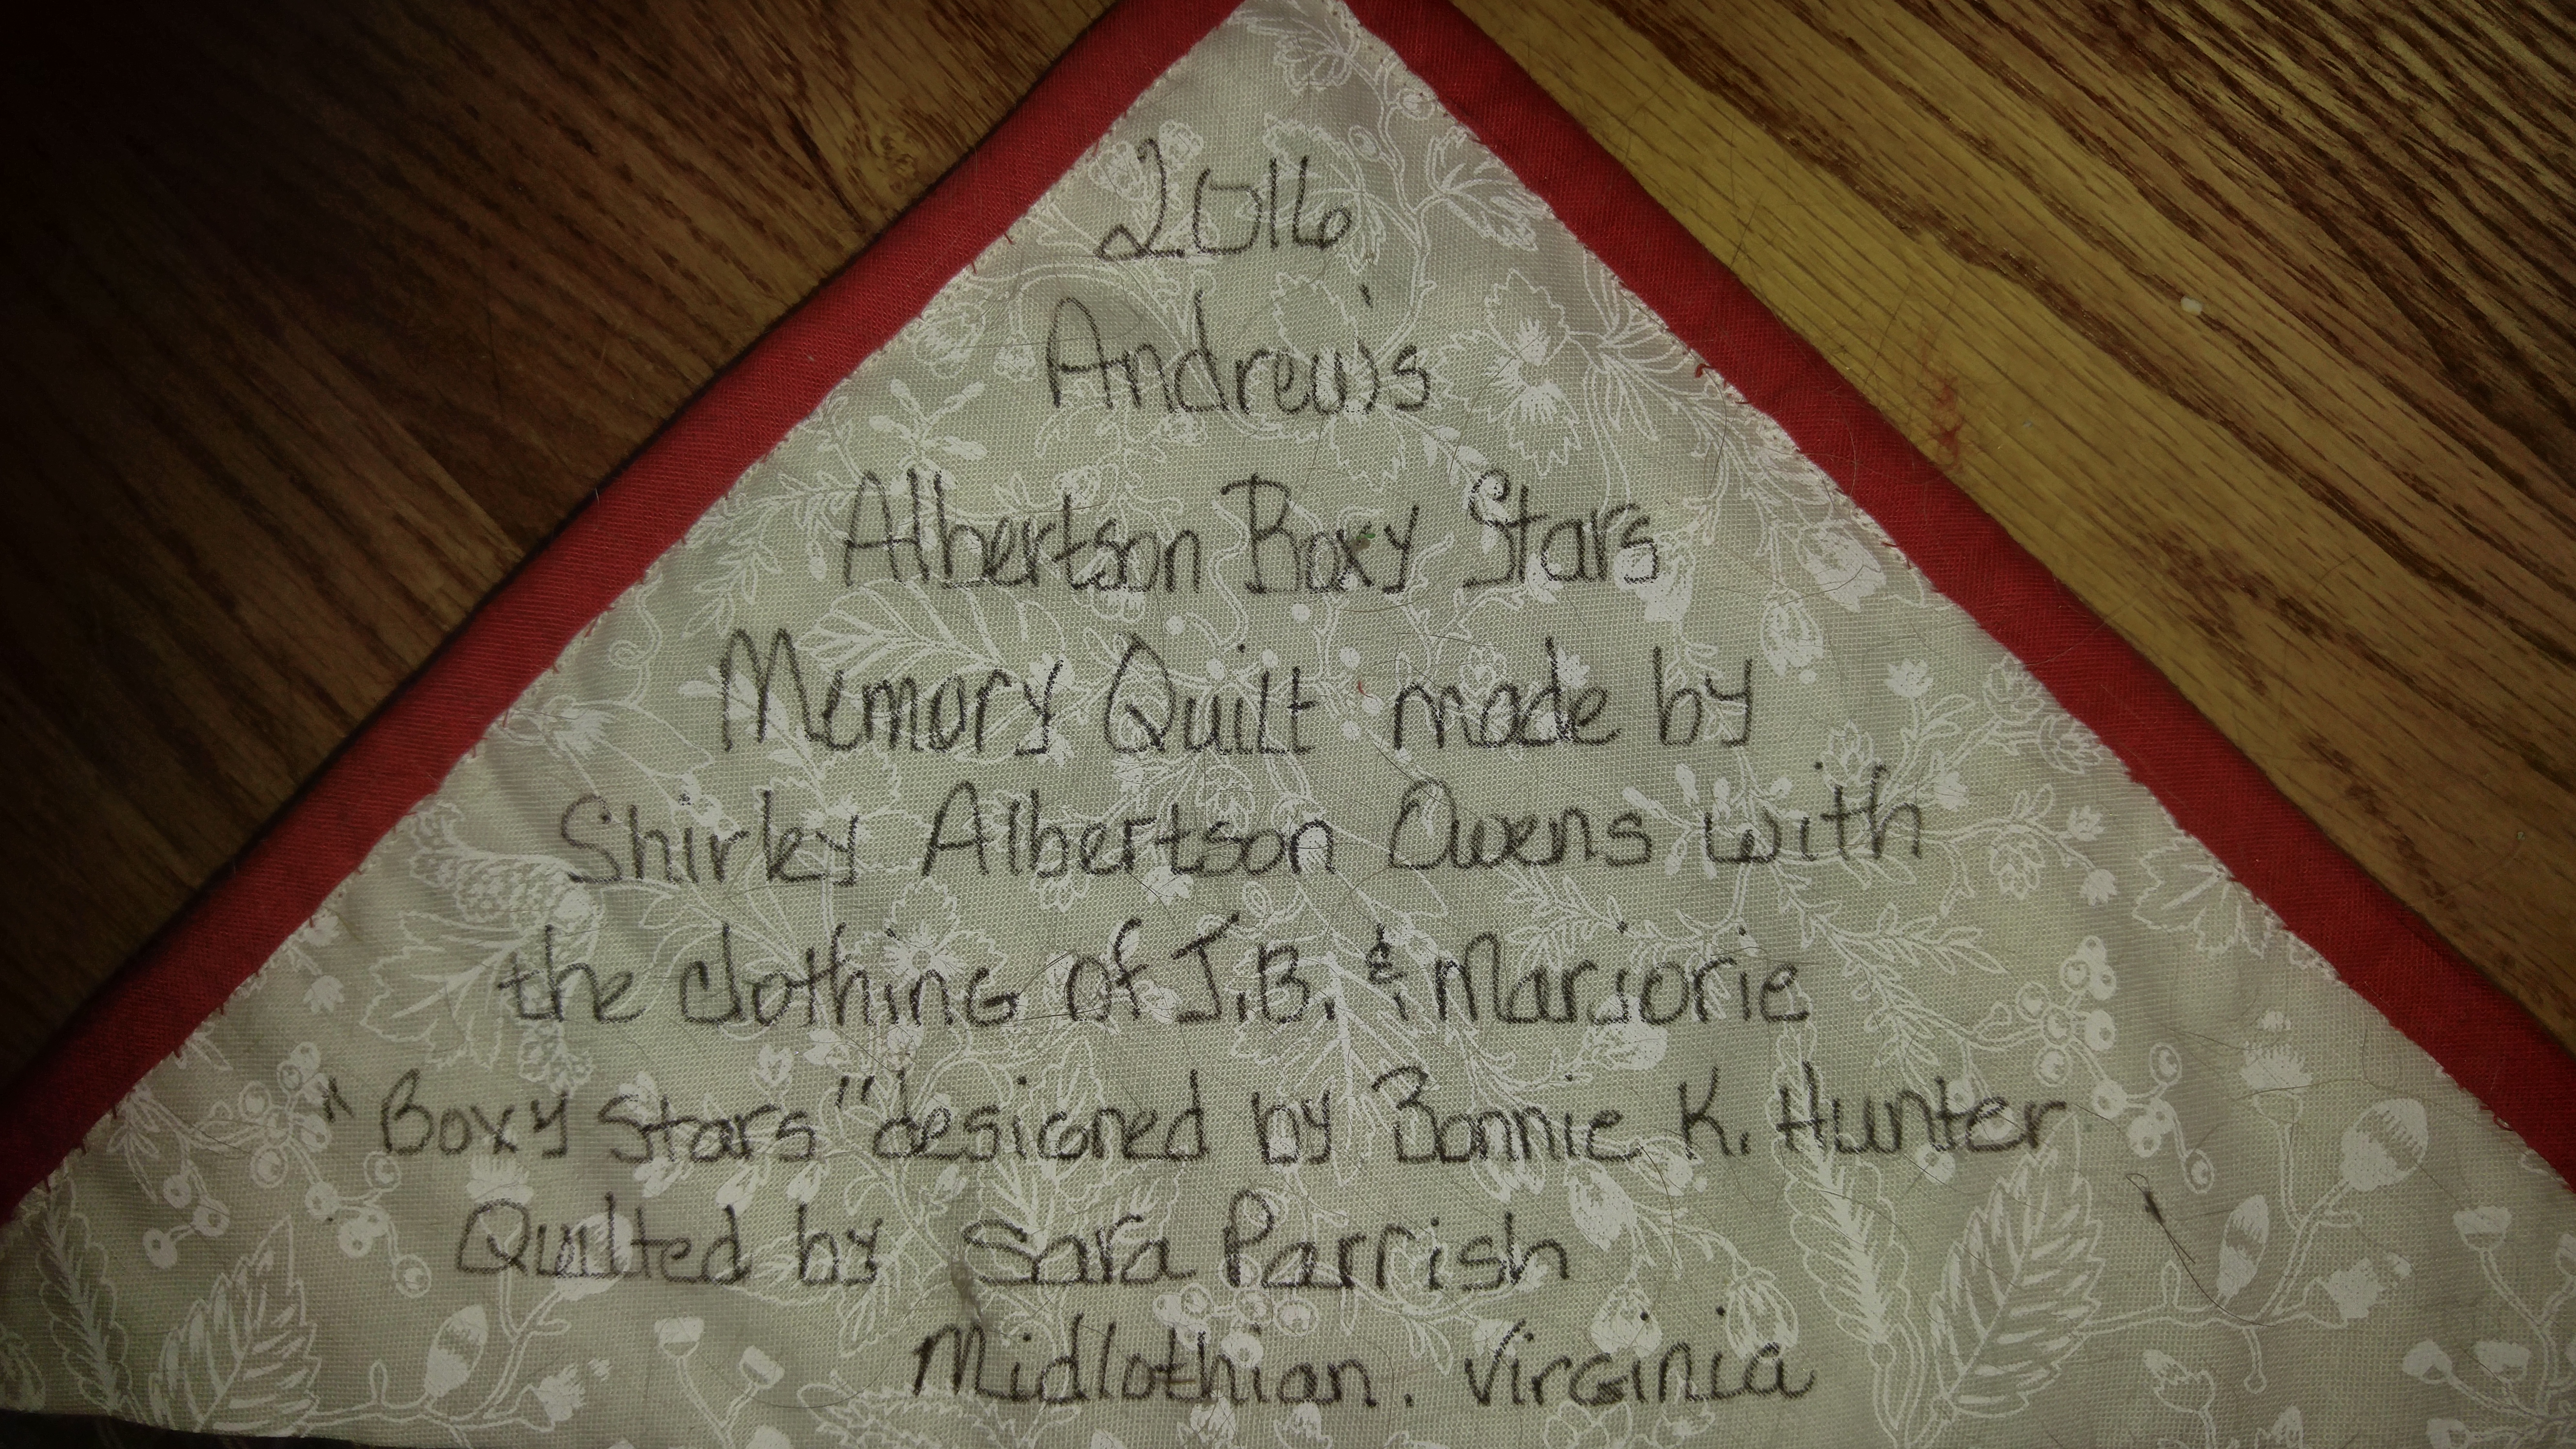 2016
Andrew's
Albertson Boxy Stars
Memory Quilt made by
Shirley Albertson Owens with
the clothing of J.B. & Marjorie
"Boxy Stars" designed by Bonnie K. Hunter
Quilted by Sara Parrish
Midlothian. Virginia